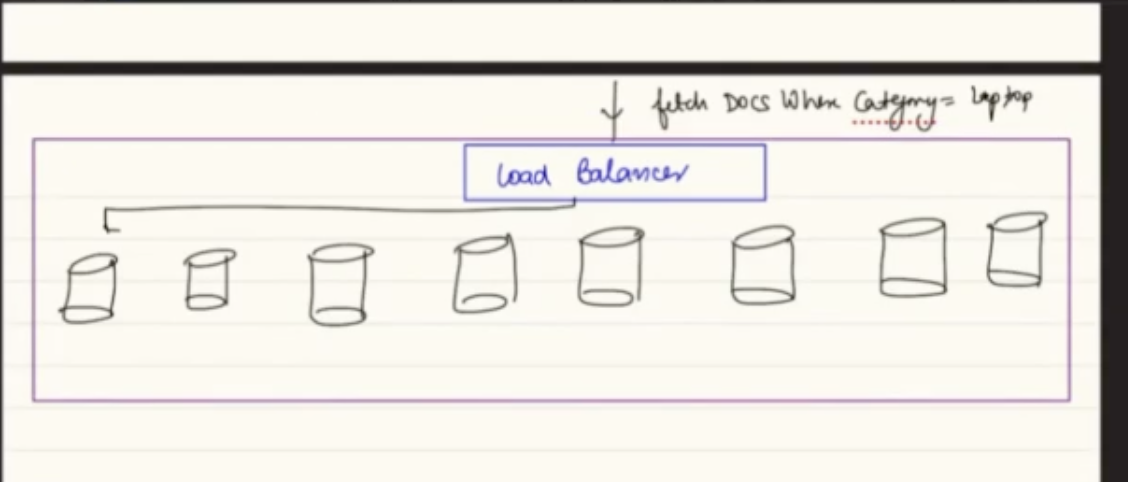 fetch Docs When Category = laptop
Load Balancer